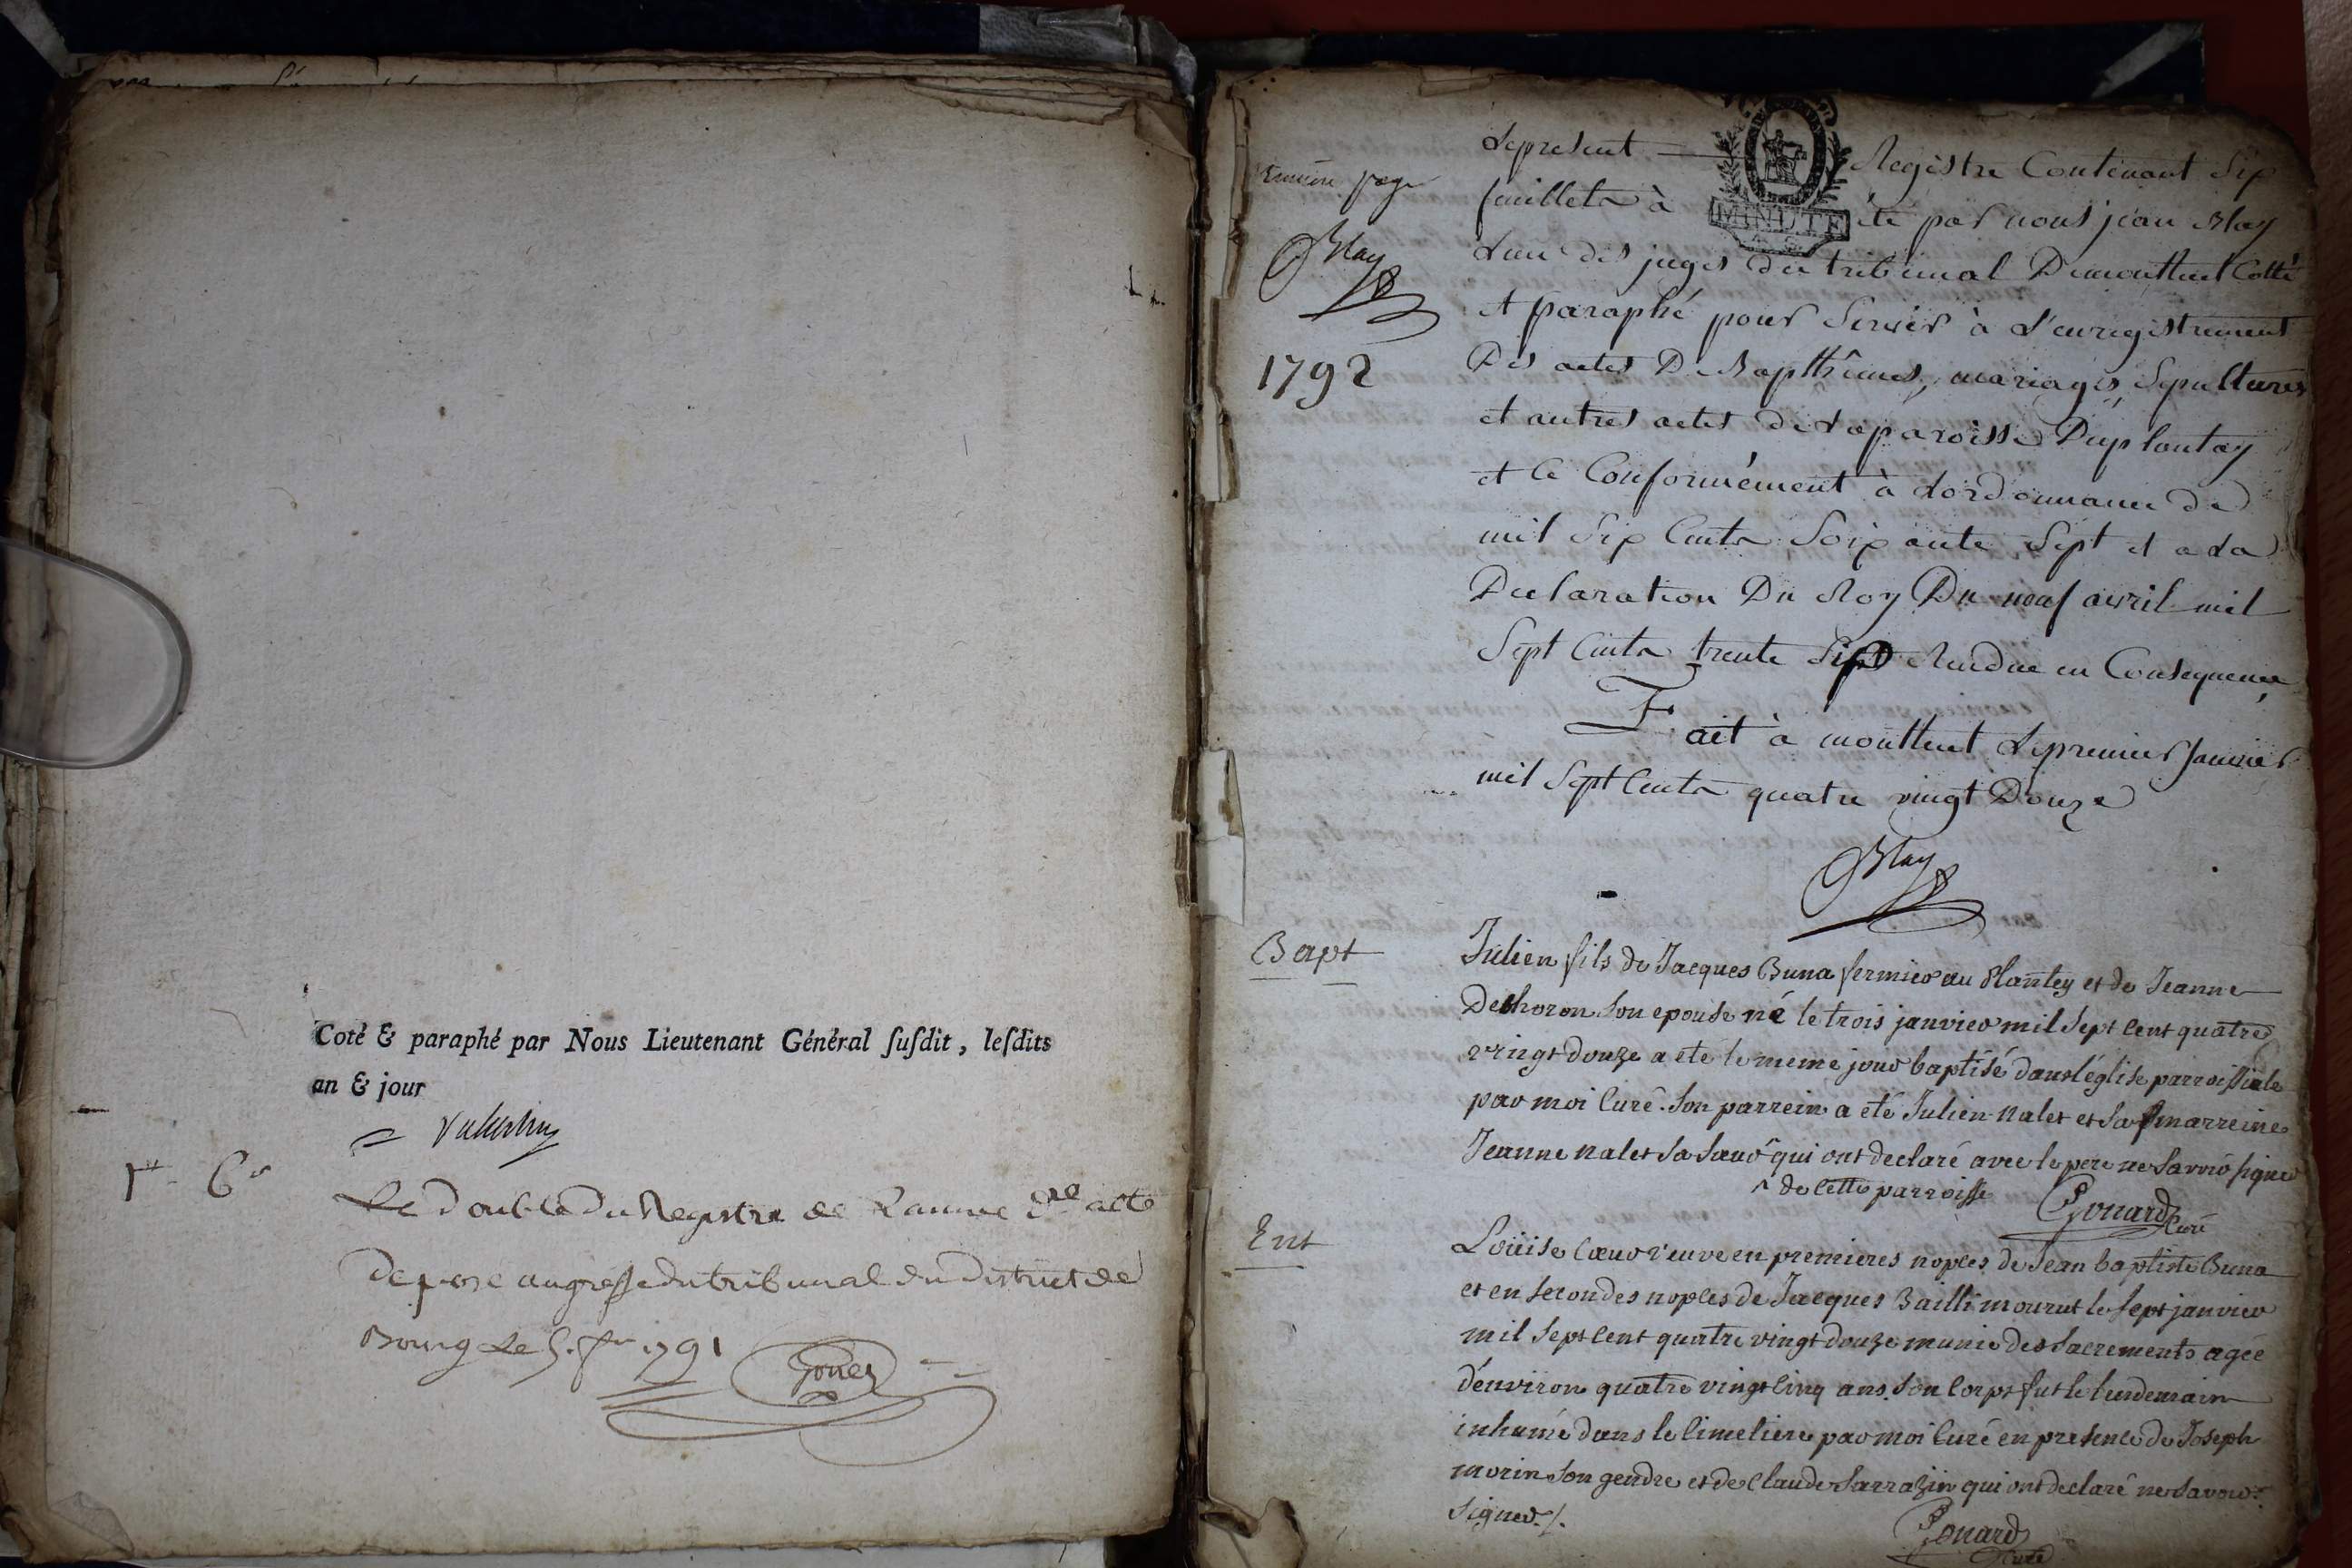 Coté & paraphé par Nous Lieutenant Général ſuſdit, leſdits
an & jour
Le double du Registre de Lannée dre a eté
deposé au greffe du tribunal du district de
Bourg Le 5. 1791
premiere page
Blay
1792
Le present Registre Contenant Six
feuillets à été par nous jean Blay
MINUTE
L'un des juges du tribunal De montluel Cotté
et paraphé pour Servir à L'enregistrement
Des actes De Bapthêmes, mariages, Sepultures
et autres actes de La paroisse Du plantay
et Ce Conformément à Lordonnance de
mil Six Cents Soixante Sept et a La
Declaration Du Roy Du neuf avril mil
Sept Cents trente Six Rendue en Consequence
Fait à montluel Le premier Janvier
mil Sept Cents quatre vingt Douze
Blay
Bapt
Julien fils de Jacques Buna fermier au Plantey et de Jeanne
son epouse né le trois janvier mil sept cent quatre
vingt douze a eté le meme jour baptisé dans l'église parroissiale
par moi Curé. Son parrein a eté Julien nalet et sa marreine
Jeanne nalet sa sœur ^ qui ont declaré avec le pere ne savoir signer
^ de cette parroisse
Gonard Curé
Ent
Loüise Cœur veuve en premieres nopces de Jean baptiste Buna
et en secondes nopces de Jacques Bailli mourut le sept janvier
mil sept cent quatre vingt douze munie des sacrements agée
d'environ quatre vingt cinq ans. Son corps fut le lendemain
inhumé dans le Cimetiere par moi Curé en presence de Joseph
morin son gendre et de Claude Sarrazin qui ont declaré ne savoir
signer./.
Gonard
Curé